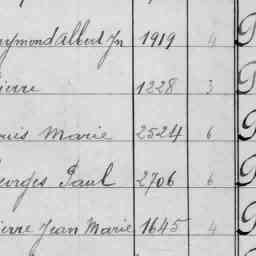 aymond Albert Jn 1919 4
ierre 1228 3
ouis Marie 2524 6
eorges Paul 2706 6
ierre Jean Marie 1645 4